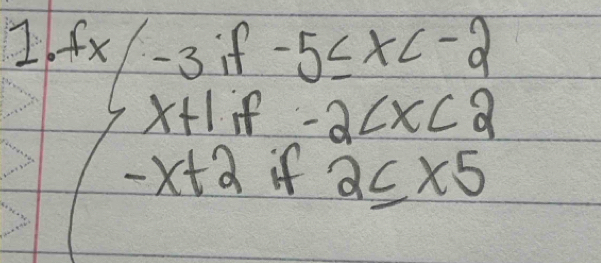 1. fx { -3 if -5 ≤ x < -2
x+1 if -2 < x < 2
-x+2 if 2 ≤ x 5